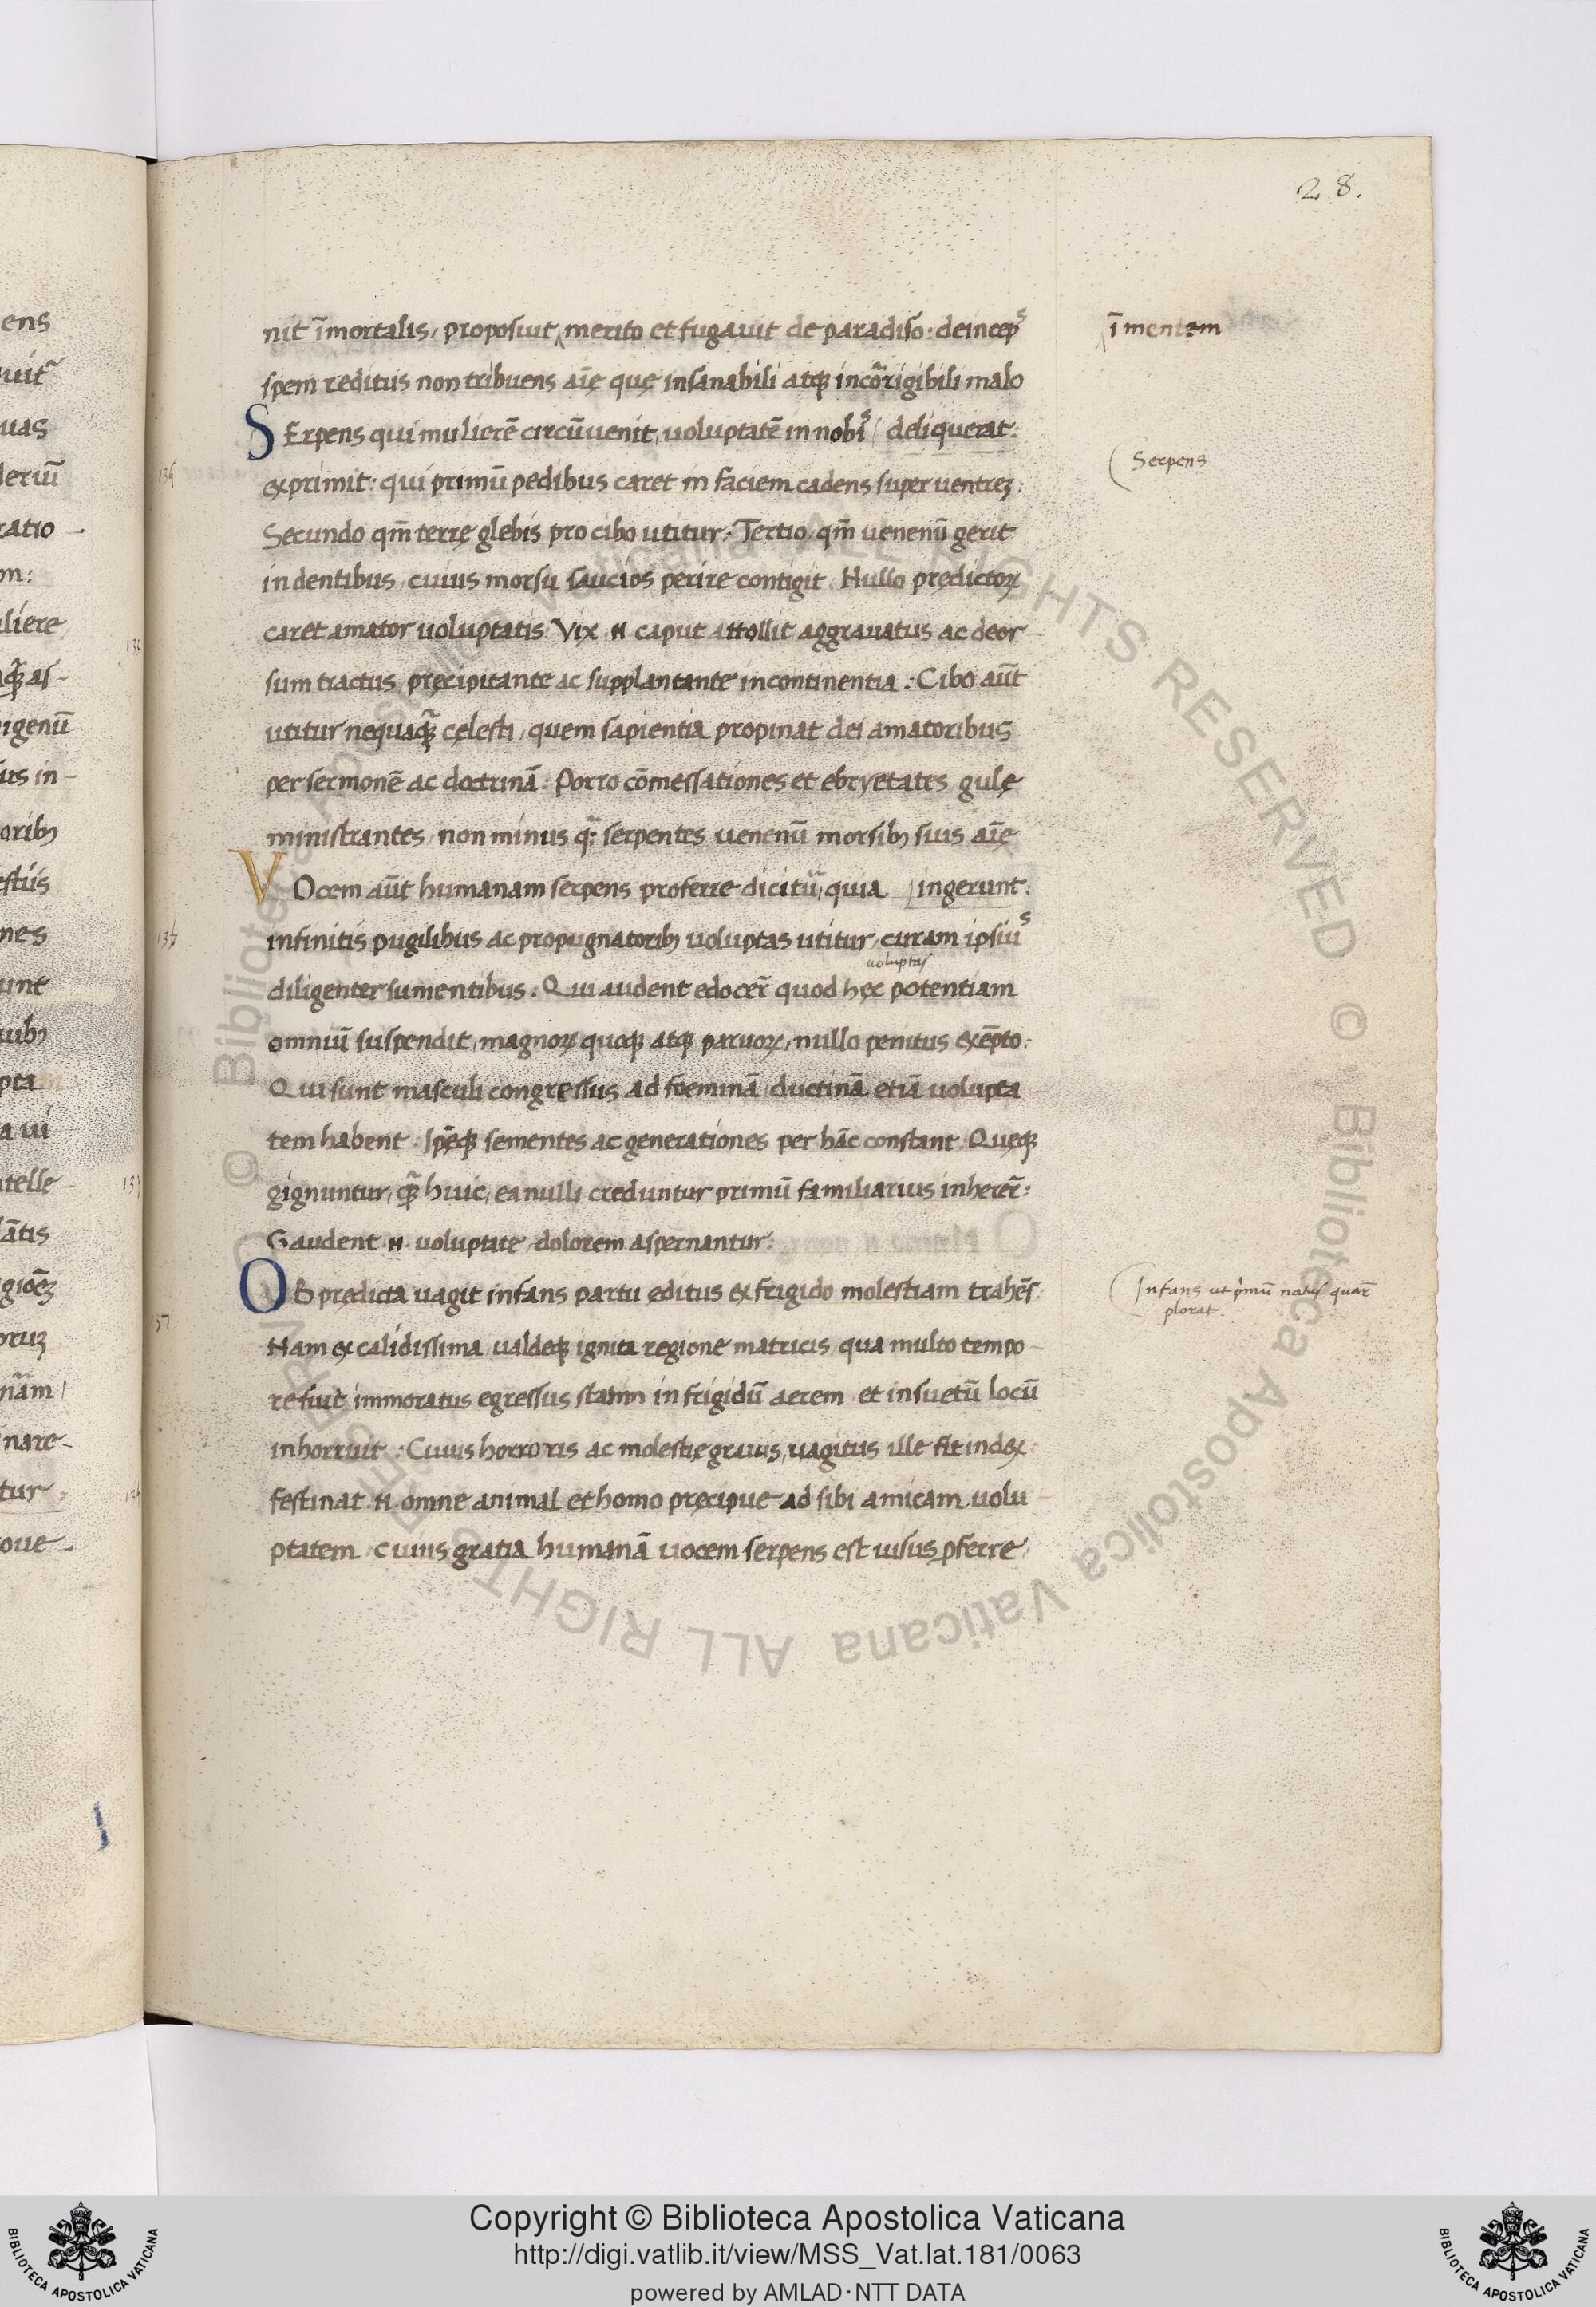 28.
nit īmortalis, proposuit merito et fugauit de paradiso: deincepˢ
īmentem
spem reditus non tribuens aīę quę insanabili atqꝫ incōrrigibili malo
SErpens qui mulierē circūuenit, uoluptatē in nobˢi deliquerat:
Serpens
exprimit: qui primū pedibus caret in faciem cadens super uentreꝫ:
Secundo qm̄ terrę glebis pro cibo utitur: Tertio, qm̄ uenenū gerit
in dentibus, cuius morsu saucios perire contigit. Nullo prędictoꝝ
caret amator uoluptatis. Vix .N. caput attollit aggrauatus ac deor
sum tractus, pręcipitante ac supplantante incontinentia: Cibo aūt
utitur nequaqꝫ̄ cęlesti, quem sapientia propinat dei amatoribus
per sermonē ac doctrinā. Porro cōmessationes et ebryetates gulę
ministrantes, non minus q̄ꝫ serpentes uenenū morsibꝫ suis aīę
VOcem aūt humanam serpens proferre dicitur, quia ingerunt:
infinitis pugilibus ac propugnatoribꝫ uoluptas utitur, curam ipsiuˢ
uoluptas
diligenter sumentibus. Qui audent edocer̄ quod hęc potentiam
omniū suspendit, magnoꝝ quoqꝫ atqꝫ paruoꝝ, nullo penitus exēpto:
Qui sunt masculi congressus ad foeminā, ductinā etiā uolupta
tem habent. Ipēqꝫ sementes ac generationes per hāc constant. Quęqꝫ
gignuntur, qꝫ̄ huic, ea nulli creduntur primū familiarius inherer̄:
Gaudent .N. uoluptate, dolorem aspernantur:
OB prędicta uagit infans partu editus ex frigido molestiam trahēs.
Infans ut pͥmū natus quar̄
plorat.
Nam ex calidissima, ualdeqꝫ ignita regione matricis, qua multo tempo-
re fuit immoratus egressus statim in frigidū aerem et insuetū locū
inhorruit: Cuius horroris ac molestię grauis, uagitus ille fit index:
festinat .N. omne animal et homo pręcipue ad sibi amicam uolu
ptatem cuius gratia humanā uocem serpens est uisus ꝓferre
Copyright © Biblioteca Apostolica Vaticana
http://digi.vatlib.it/view/MSS_Vat.lat.181/0063
powered by AMLAD·NTT DATA